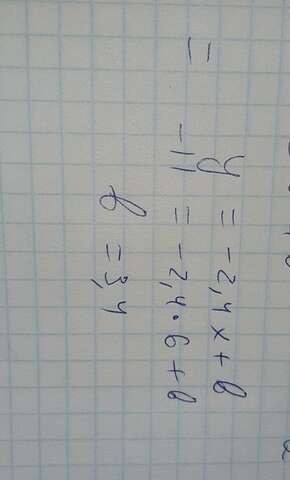 y = -2,4x + b
-11 = -2,4·6 + b
b = 3,4
=